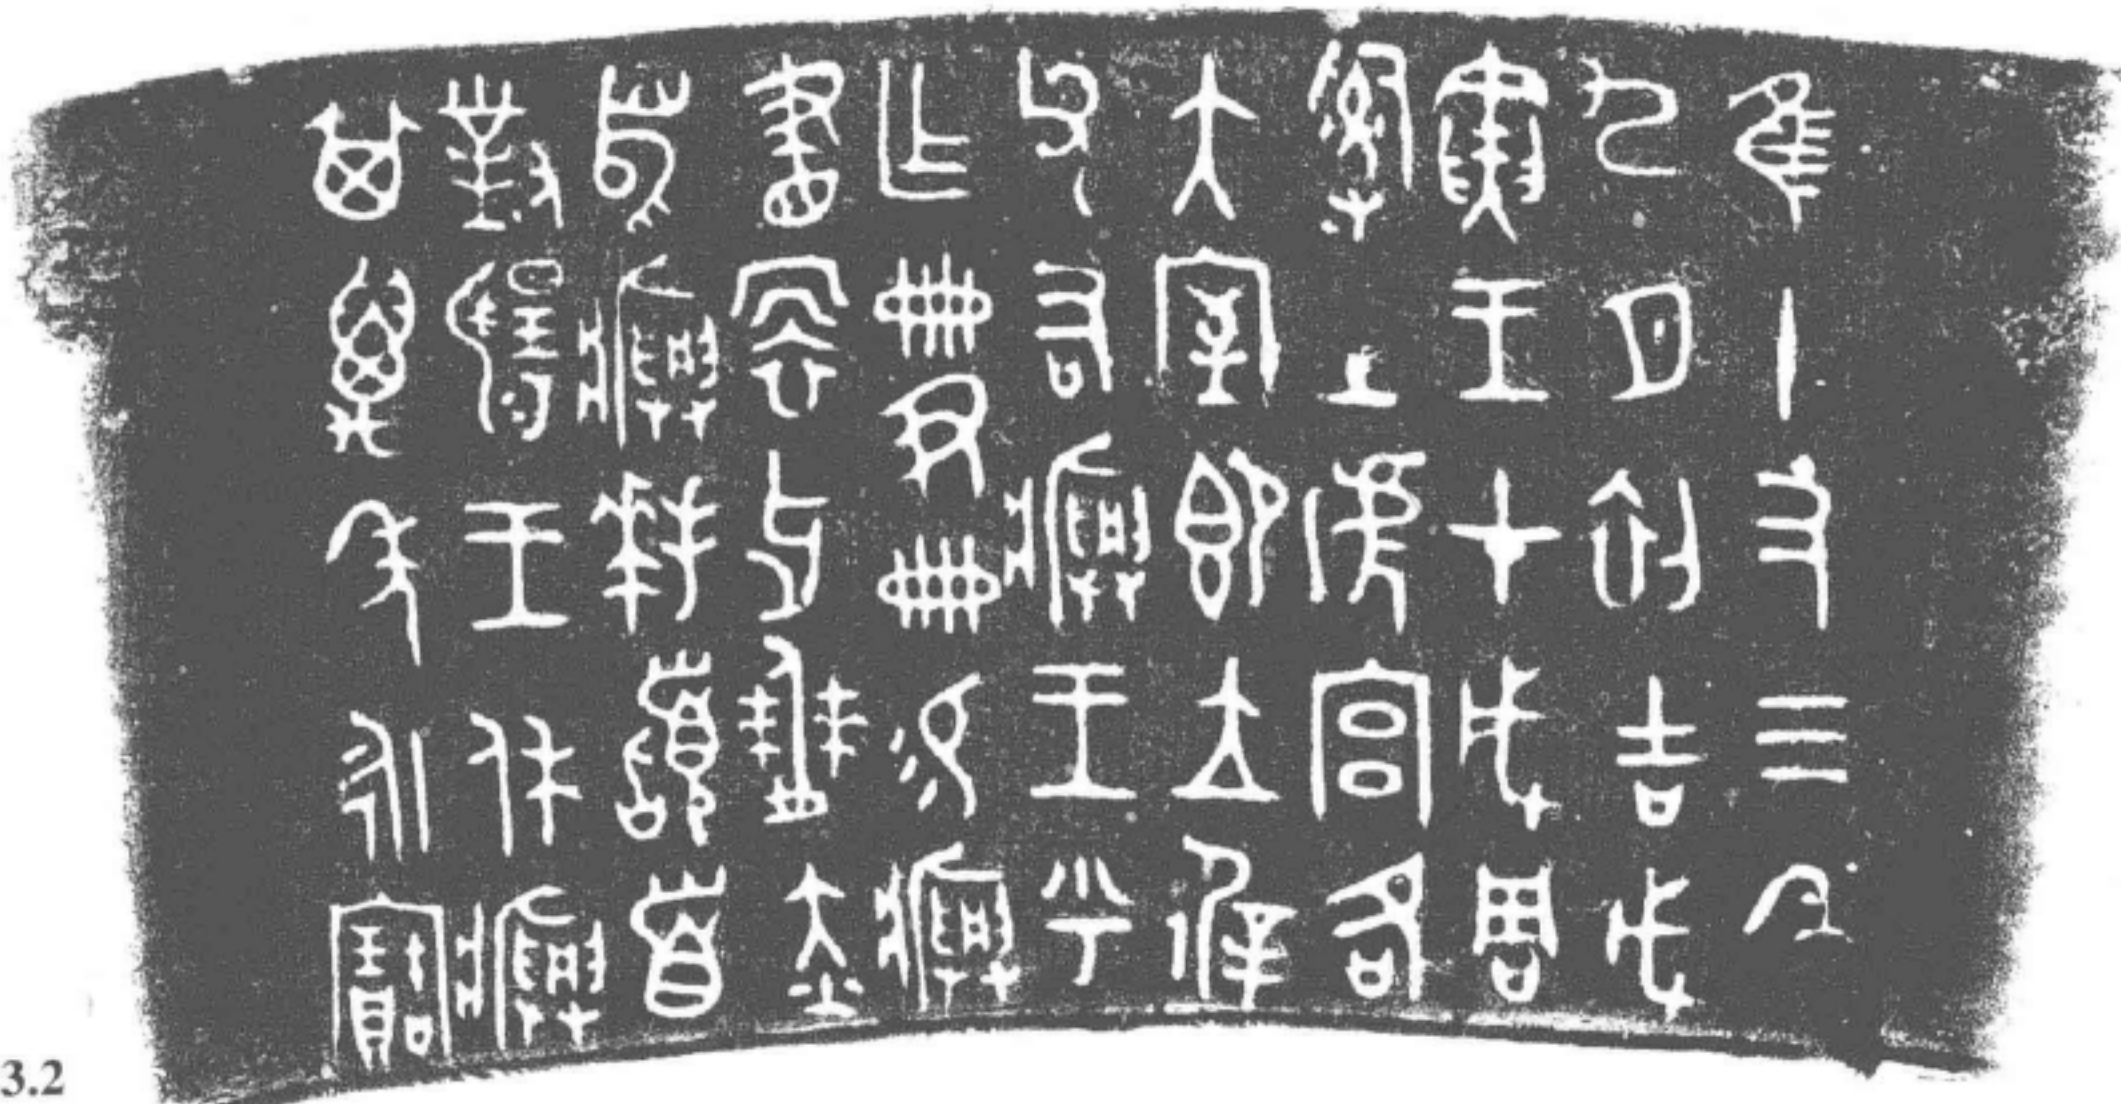 隹十又三年
九月初吉戊
寅王才成周
𤔲土淲宮各
大室即立徲
父右𤼈王乎
乍冊尹冊易𤼈
畫袗牙僰赤
舄𤼈拜𩒨首
對揚王休𤼈
其萬年永寶
3.2